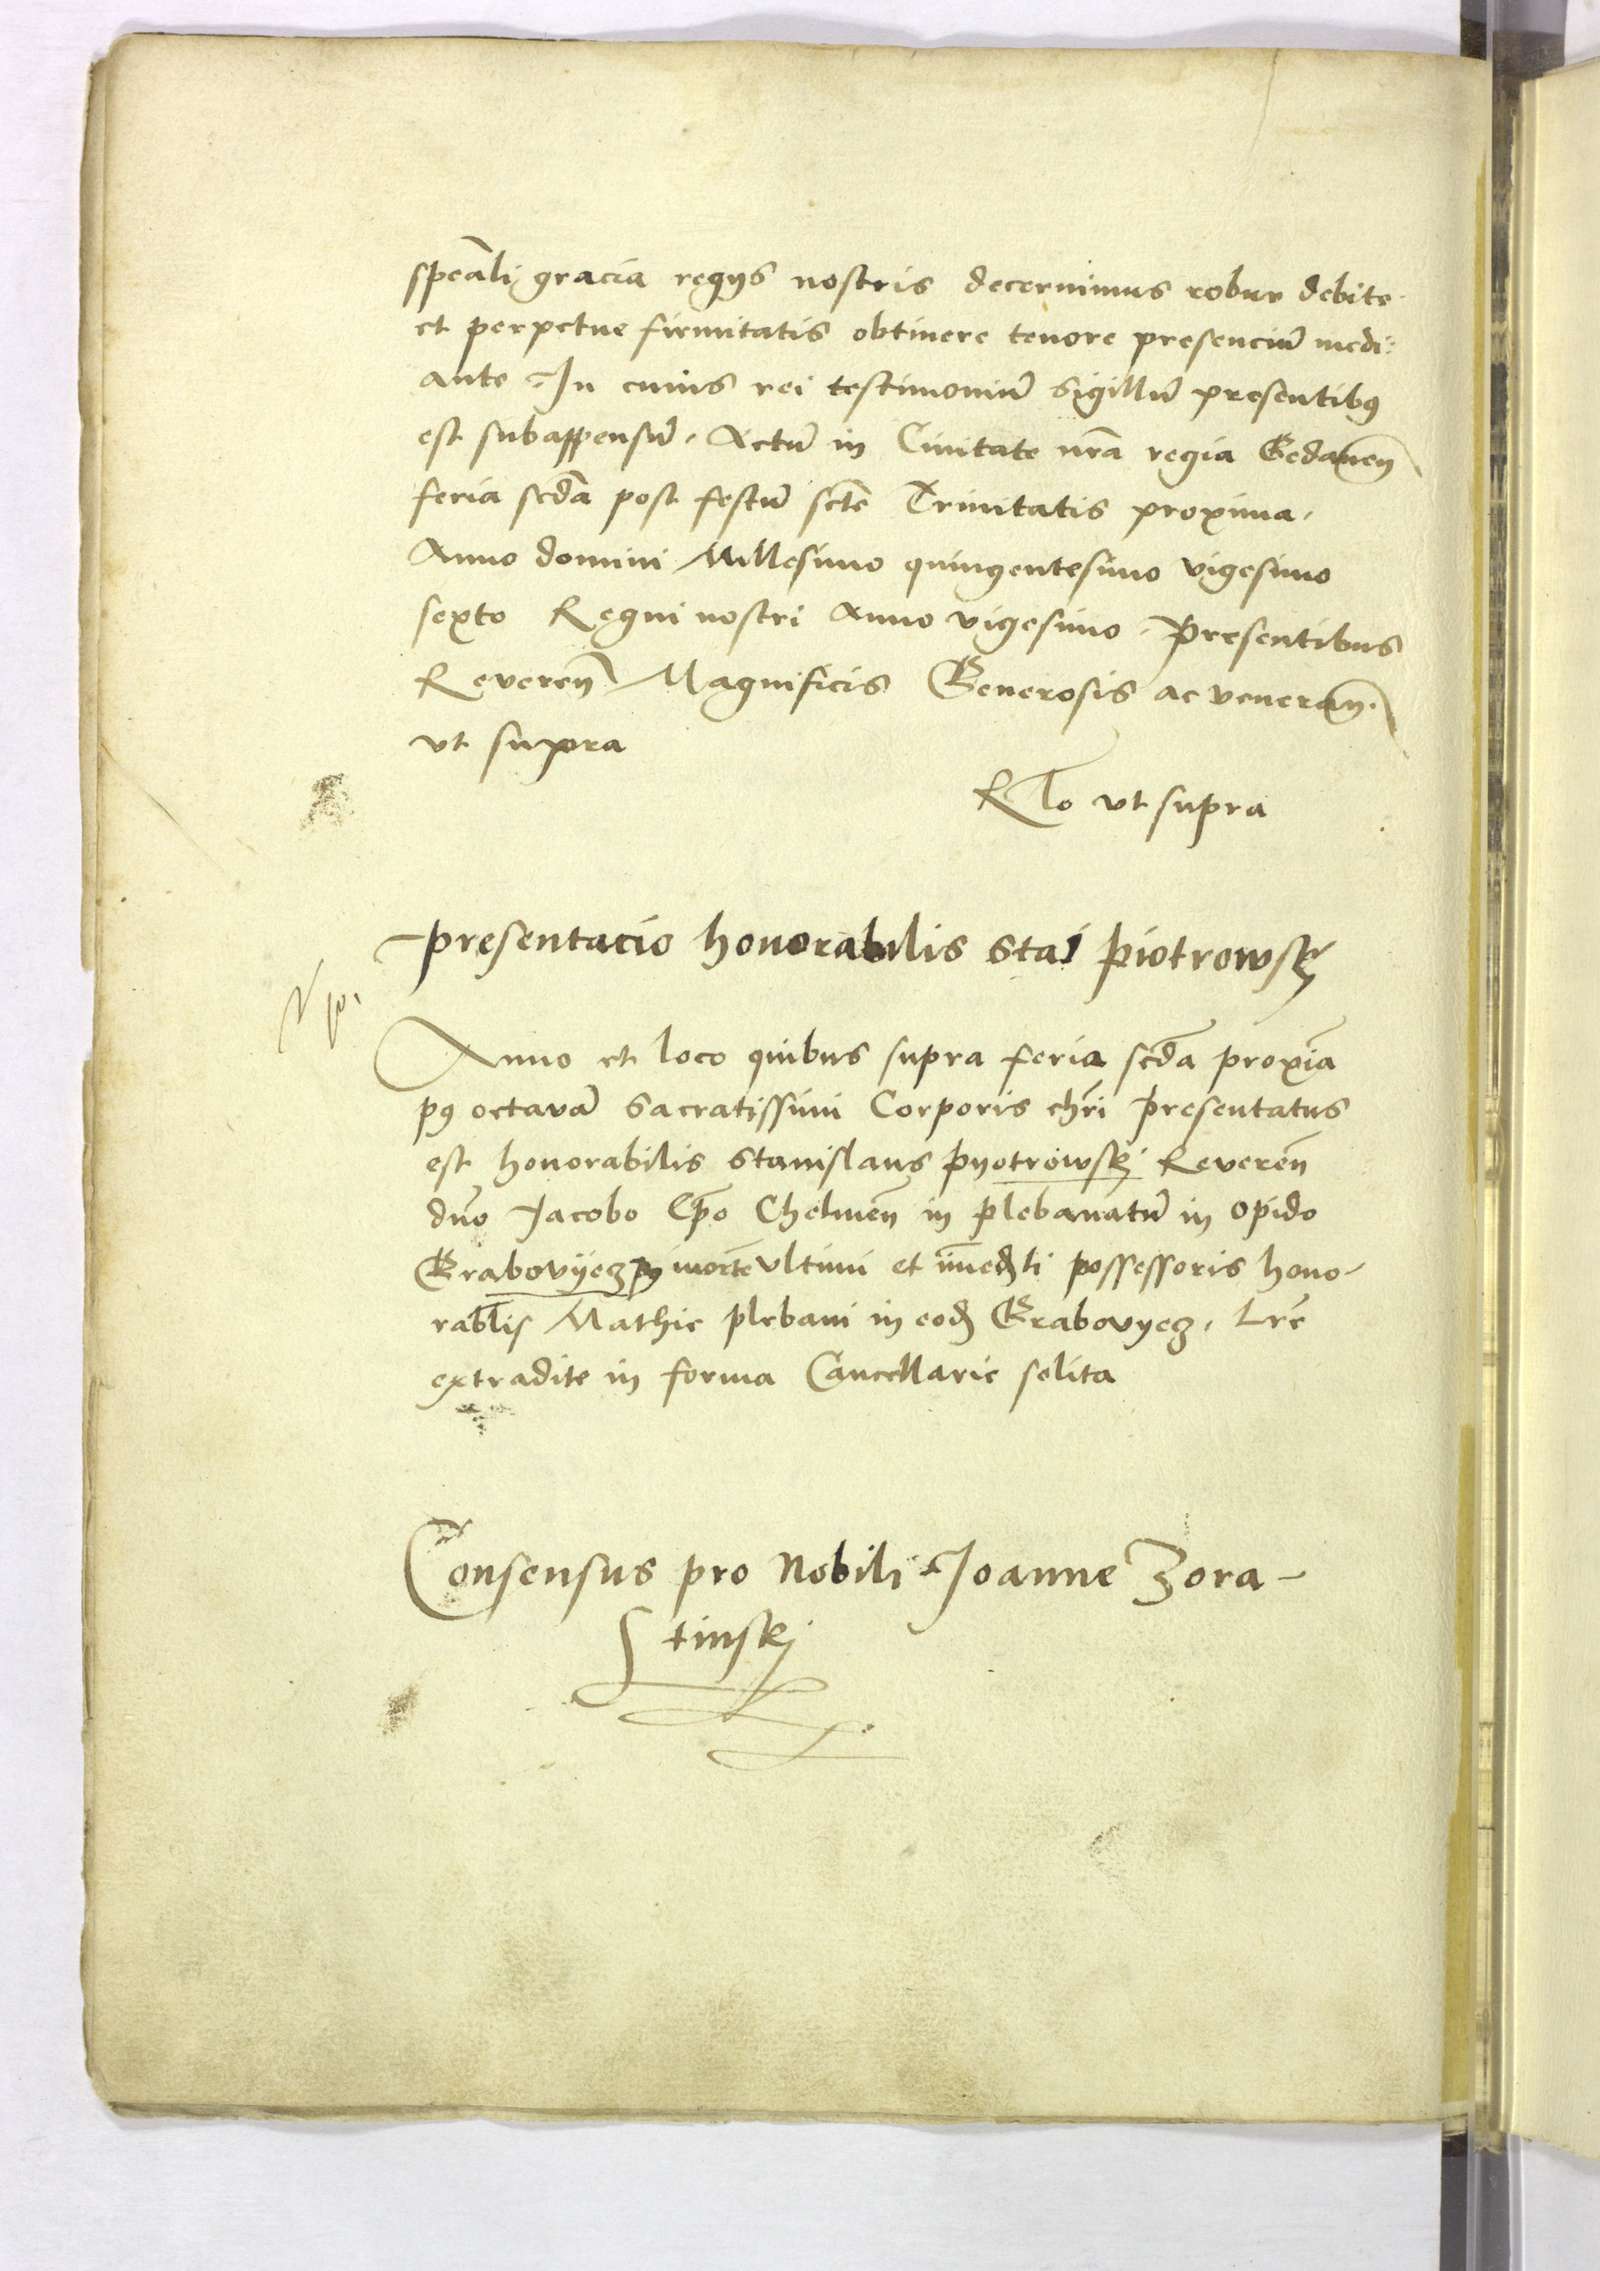 speali gracia regys nostris decernimus robur debite
et perpetue firmitatis obtinere tenore presenciu medi:
ante In cuius rei testimoniu Sigillu presentibus
est subappensu. Actu in Ciuitate nra regia Gedanen
feria scda post festu scte Trinitatis proxima.
Anno domini Millesimo quingentesimo vigesimo
sexto Regni nostri Anno vigesimo. Presentibus
Reveren Magnificis Generosis ac veneran.
vt supra
Rlo vt supra
presentacio honorabilis Stai Piotrowskj
Anno et loco quibus supra feria scda proxia
post octava Sacratissimi Corporis chri presentatus
est honorabilis Stanislaus Pyotrowskj Reveren
dno Jacobo Epo Chelmen in plebanatu in opido
Grabovyecz post morte vltimi et immediati possessoris hono-
rablis Mathie plebani in eod Grabovyecz. Lre
extradite in forma Cancellarie solita
Consensus pro Nobili Joanne Zora-
stinskj